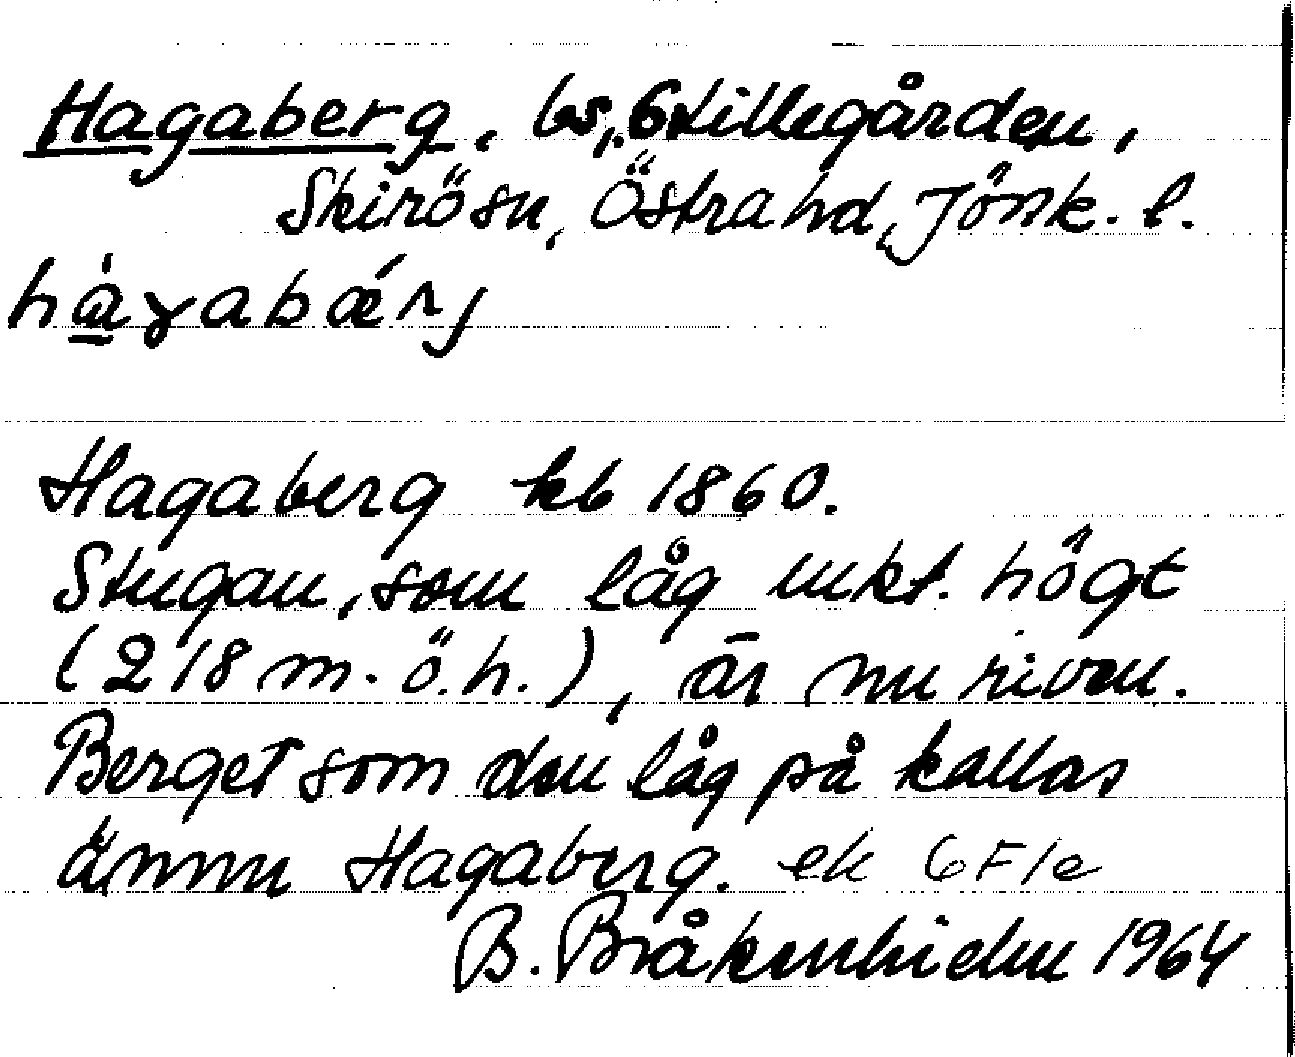 Hagaberg, bs, Stillegården,
Skirösn, Östrahd, Jönk. l.
hàɣabǽrj
Hagaberg kb 1860.
Stugan, som låg mkt. högt
(218 m. ö. h.), är nu riven.
Berget som den låg på kallas
ännu Hagaberg. ek 6F1e
B. Bråkenhielm 1964